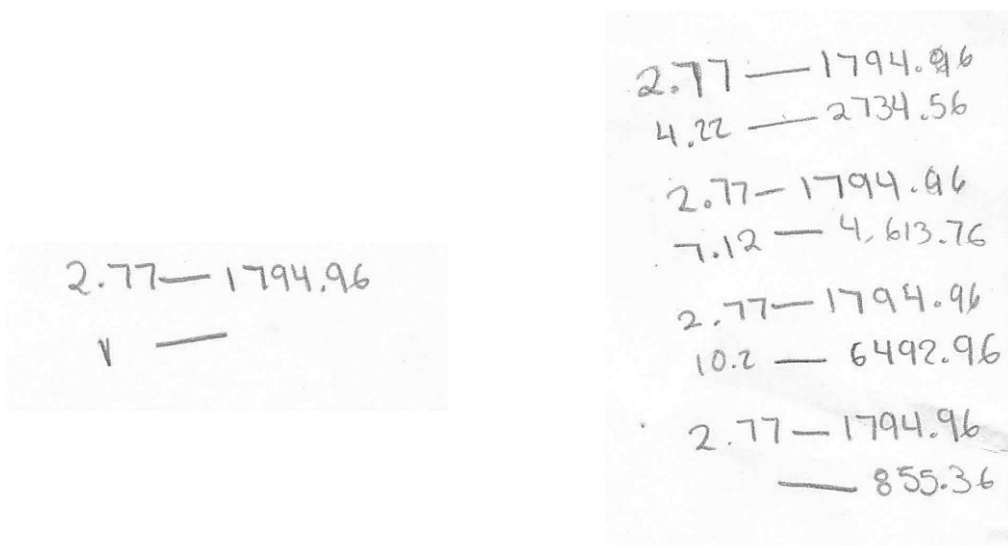 2.77 — 1794.96
1 —
2.77 — 1794.96
4.22 — 2734.56
2.77 — 1794.96
7.12 — 4,613.76
2.77 — 1794.96
10.2 — 6492.96
2.77 — 1794.96
— 855.36